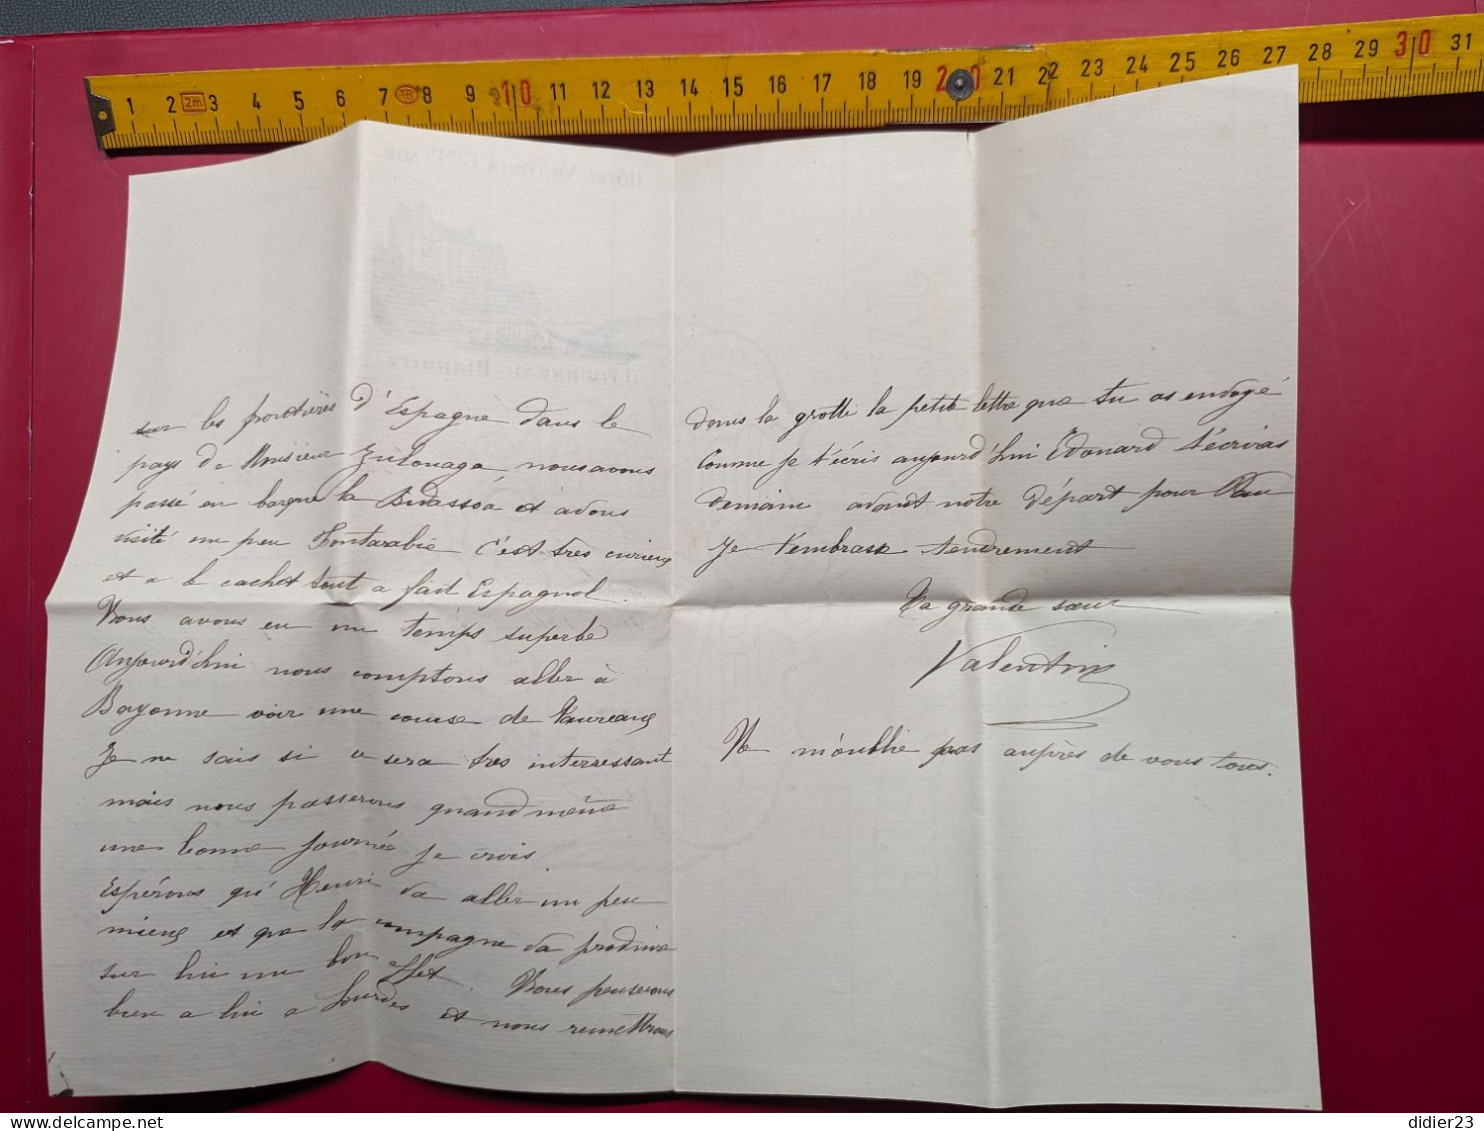 1 2 2m 3 4 5 6 7 8 9 10 11 12 13 14 15 16 17 18 19 20 21 22 23 24 25 26 27 28 29 30 31
sur les frontières d'Espagne dans le
pays de Monsieur nous avons
passé en barque la Bidassoa et avons
visité un peu Fontarabie c'est très curieux
et a le cachet tout a fait Espagnol.
Nous avons eu un temps superbe
Aujourd'hui nous comptons aller à
Bayonne voir une course de Taureaux
Je ne sais si ce sera très interressant
mais nous passerons quand même
une bonne journée je crois.
Espérons qu'Henri va aller un peu
mieux et que la campagne va produire
sur lui un bon effet. Nous penserons
bien a lui a Lourdes et nous remettrons
dans la grotte la petite lettre que tu as envoyé
Comme je t'écris aujourd'hui Edouard t'écriras
demain avant notre départ pour Pau
Je t'embrasse tendrement
Ta grande sœur
Valentine
Ne m'oublie pas auprès de vous tous.
HÔTEL VICTORIA Gde PLAGE
J. FOURNEAU, BIARRITZ
delcampe.net
didier23